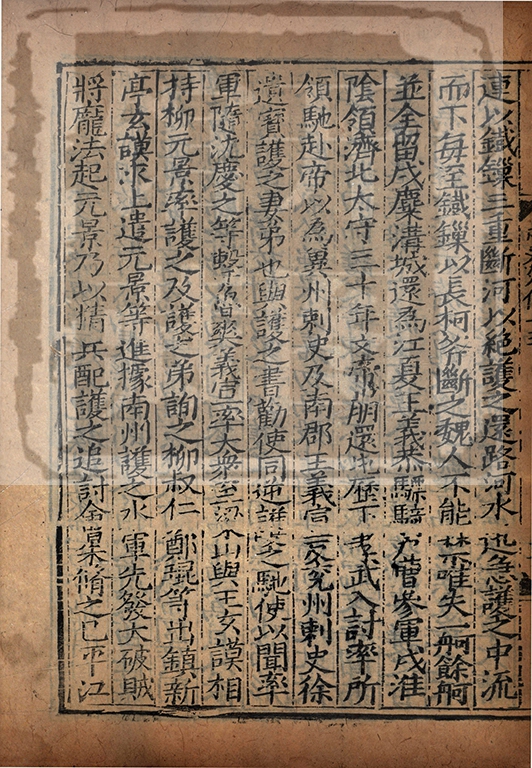 連以鐵鏁三重斷河以絕護之還路河水迅急護之中流
而下每至鐵鏁以長柯斧斷之魏人不能禁唯失一舸餘舸
並全留戍麋溝城還爲江夏王義恭驃騎戶曹參軍戍淮
陰領濟北太守三十年文帝崩還屯歷下孝武入討率所
領馳赴帝以爲冀州刺史及南郡王義宣反兖州刺史徐
遺寳護之妻弟也與護之書勸使同逆護之馳使以聞率
軍隨沈慶之等擊魯爽義宣率大衆至梁山與王玄謨相
持柳元景率護之及護之弟詢之柳叔仁鄭琨等出鎮新
亭玄謨求上遣元景等進據南州護之水軍先發大破賊
將龐法起元景乃以精兵配護之追討會脩之已平江